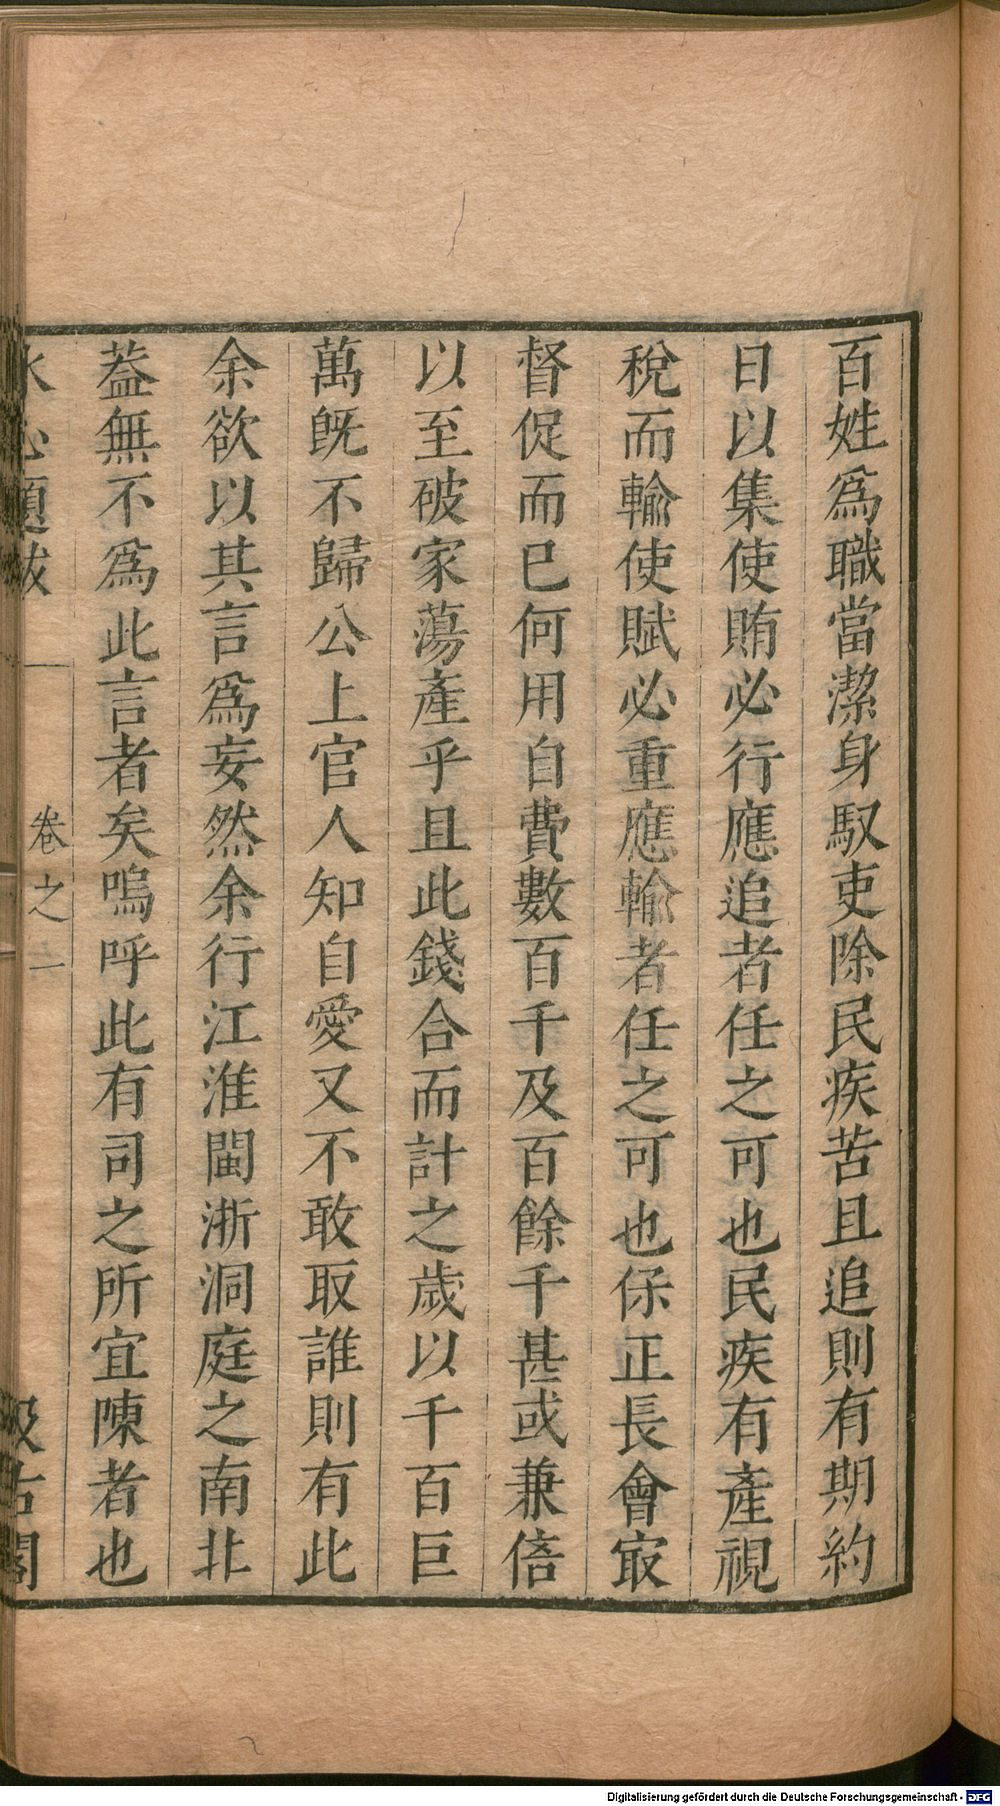 百姓爲職當潔身馭吏除民疾苦且追則有期約
日以集使賄必行應追者任之可也民疾有產視
稅而輸使賦必重應輸者任之可也保正長會㝡
督促而已何用自費數百千及百餘千甚或兼倍
以至破家蕩產乎且此錢合而計之歲以千百巨
萬旣不歸公上官人知自愛又不敢取誰則有此
余欲以其言爲妄然余行江淮閩浙洞庭之南北
葢無不爲此言者矣嗚呼此有司之所宜陳者也
水心題跋 卷之一 汲古閣
Digitalisierung gefördert durch die Deutsche Forschungsgemeinschaft - DFG